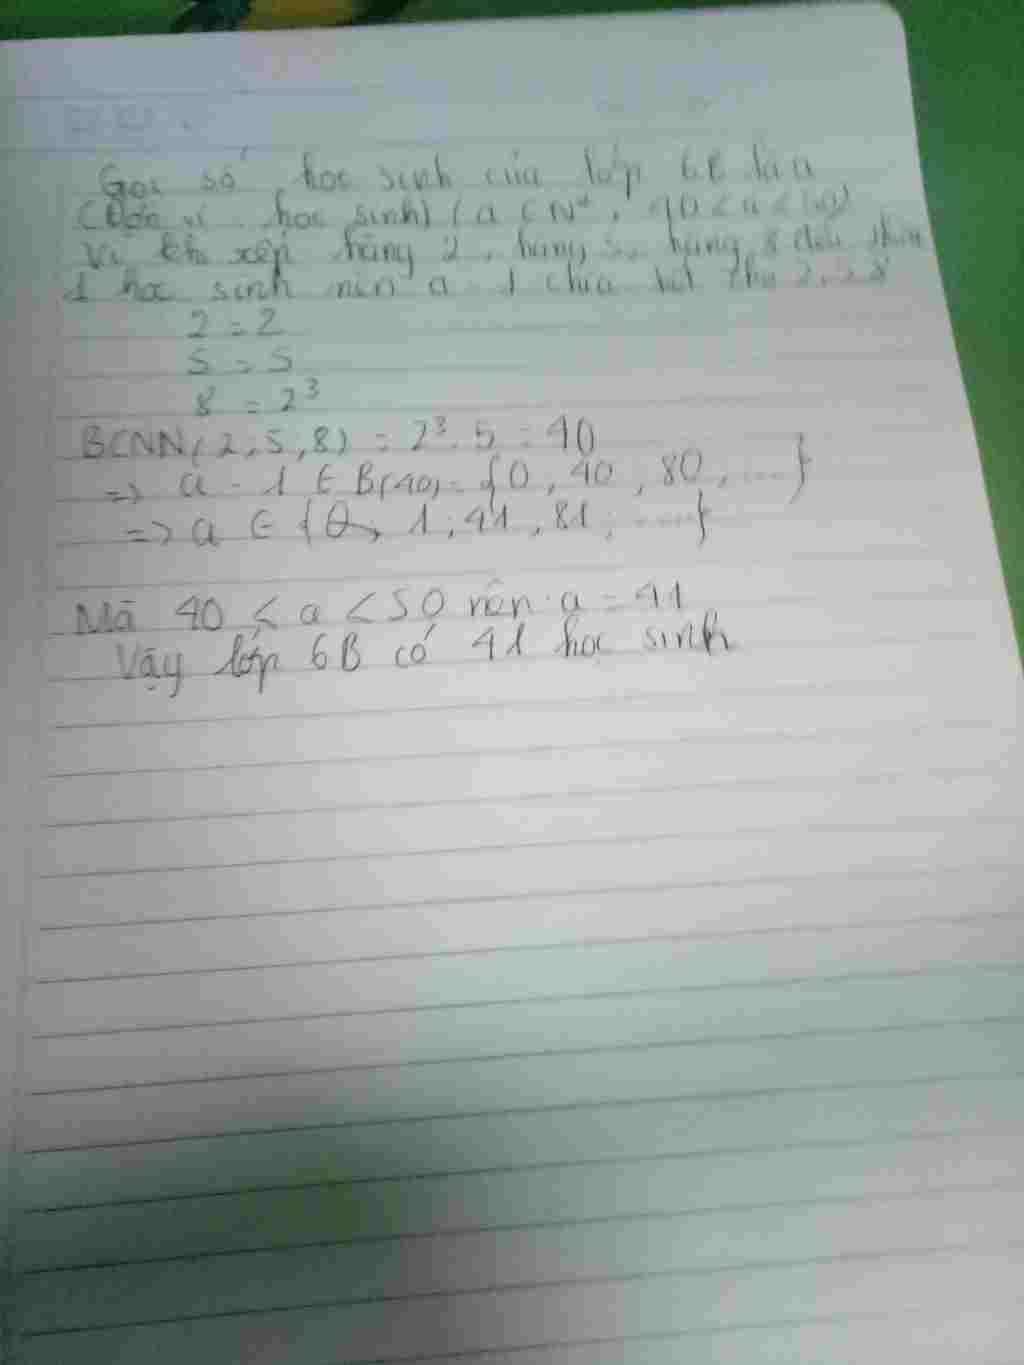 Gọi số học sinh của lớp 6B là a
(Đơn vị: học sinh) (a ∈ N*, 40 < a < 50)
Vì khi xếp hàng 2, hàng 5, hàng 8 đều thừa
1 học sinh nên a - 1 chia hết cho 2, 5, 8
2 = 2
5 = 5
8 = 2³
BCNN(2, 5, 8) = 2³. 5 = 40
=> a - 1 ∈ B(40) = {0, 40, 80, ....}
=> a ∈ { 1; 41, 81; .....}
Mà 40 < a < 50 nên a = 41
Vậy lớp 6B có 41 học sinh